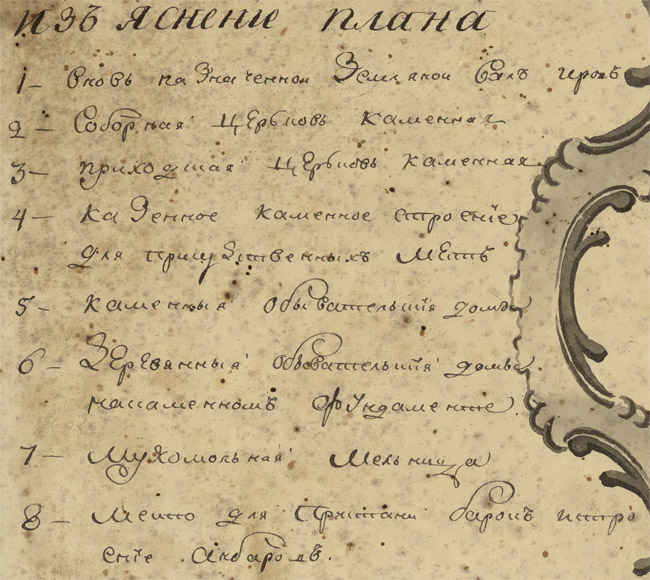 изъяснение плана
1 – вновь назначенной земляной валъ
2 – Соборная церьковь каменная
3 – приходшая церьковь каменная
4 – казенное каменное строение
для присудственныхъ местъ
5 – каменныя обывательския домы
6 – деревянныя обывательския домы
накаменномъ фундаменте.
7 – мукомольная мельница
8 – место для пристани барокъ истро
ение анбаровъ.